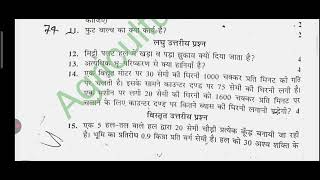 कीजिए।
11. फुट वाल्व का क्या कार्य है?
लघु उत्तरीय प्रश्न
12. मिट्टी पलट हल में खड़ा व पड़ा झुकाव क्यों दिया जाता है? 4
13. अत्यधिक भू-परिष्करण से क्या हानियाँ हैं? 4
14. एक विद्युत मोटर पर 30 सेमी की घिरनी 1000 चक्कर प्रति मिनट की गति
पर चलती है। इसके सामने काउन्टर दण्ड पर 75 सेमी की घिरनी लगी है।
एक मशीन पर लगी 20 सेमी की घिरनी को 1600 चक्कर प्रति मिनट पर
चलाने के लिए काउन्टर दण्ड पर कितने व्यास की घिरनी लगानी पड़ेगी? 4
विस्तृत उत्तरीय प्रश्न
15. एक 5 हल-तल वाले हल द्वारा 20 सेमी चौड़ी प्रत्येक कूँड़ बनायी जा रही
है। भूमि का प्रतिरोध 0.9 किग्रा प्रति वर्ग सेमी है। हल को 30 अश्व शक्ति के